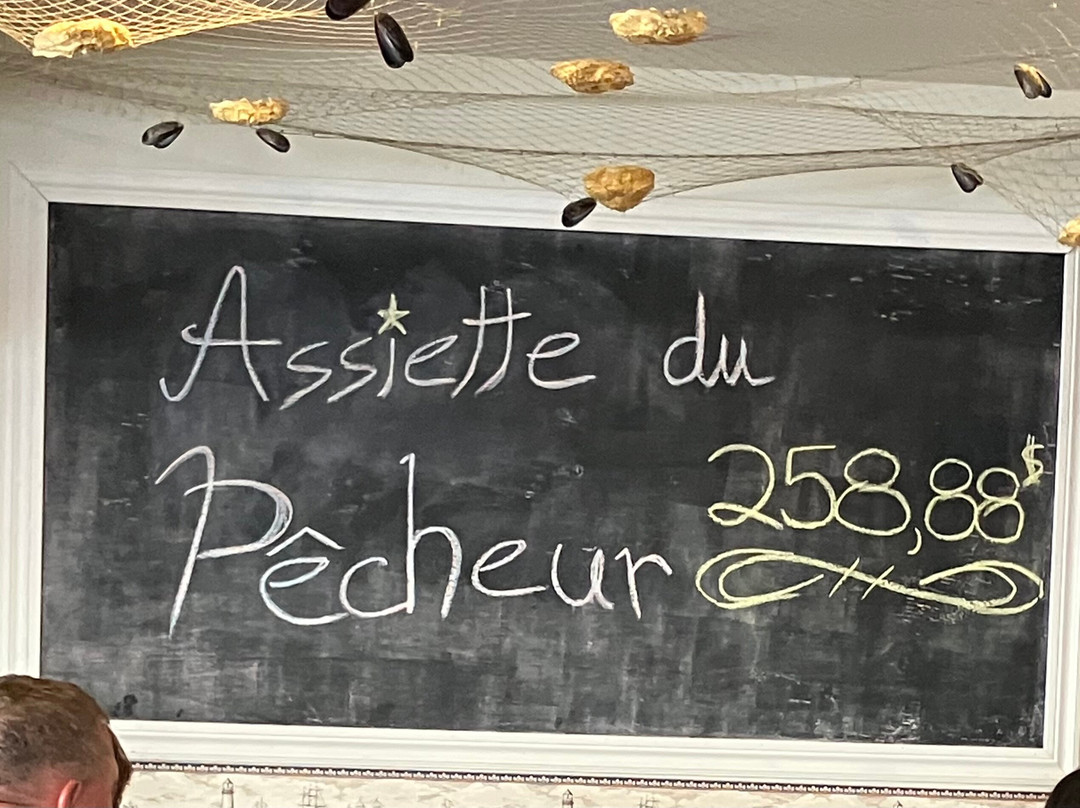 Assiette du
Pêcheur 258,88$